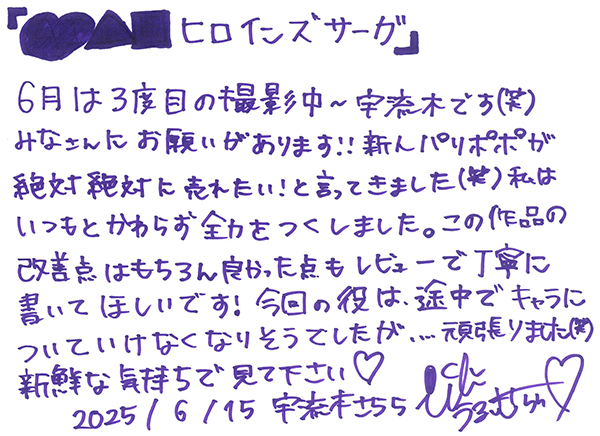 『♥▲■ヒロインズサーガ』
6月は3度目の撮影中～宇流木です(笑)
みなさんにお願いがあります!!新人パリポポが
絶対絶対に売れたい!と言ってきました(笑)私は
いつもとかわらず全力をつくしました。この作品の
改善点はもちろん良かった点もレビューで丁寧に
書いてほしいです!今回の役は、途中でキャラに
ついていけなくなりそうでしたが、…頑張りました(笑)
新鮮な気持ちで見て下さい♡
2025/6/15 宇流木さらら